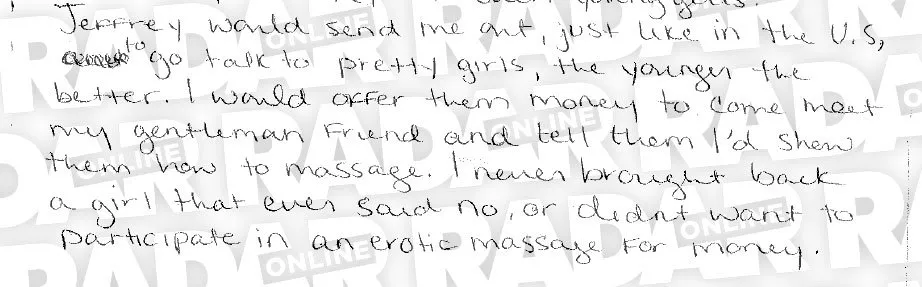 young girls.
Jeffrey would send me out, just like in the U.S,
to go talk to pretty girls, the younger the
better. I would offer them money to come meet
my gentleman Friend and tell them I'd show
them how to massage. I never brought back
a girl that ever said no, or didnt want to
participate in an erotic massage For money.
RADAR ONLINE